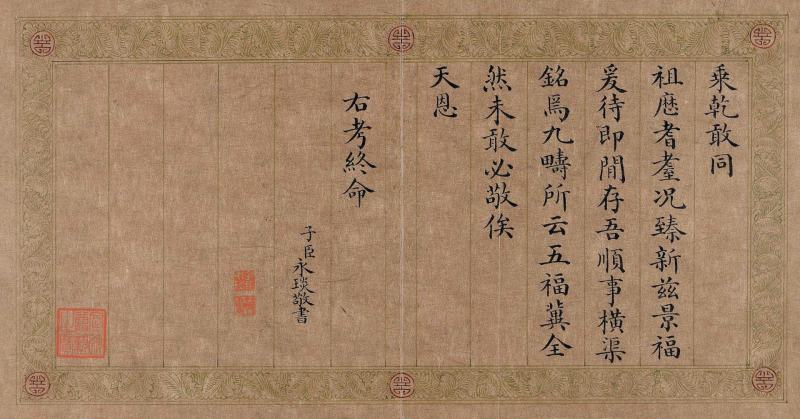 乘乾敢同
祖歷耆耋況臻新茲景福
爰待即閒存吾順事橫渠
銘焉九疇所云五福冀全
然未敢必敬俟
天恩
右考終命
子臣永琰敬書